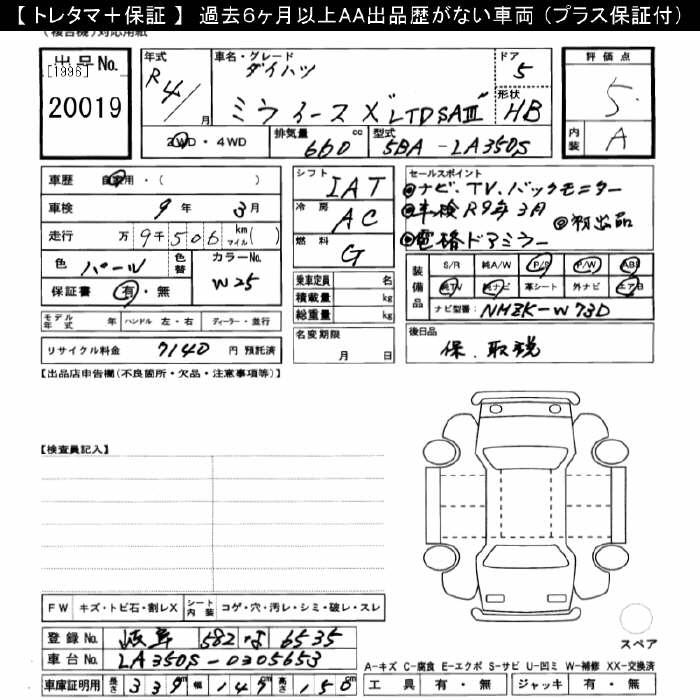 【 トレタマ＋保証 】 過去６ヶ月以上ＡＡ出品歴がない車両（プラス保証付）
(複合機)対応用紙
出品No. [1996] 20019
年式 R4/ 月
車名・グレード ダイハツ ミライース X "LTDSAⅢ"
ドア 5
形状 HB
2WD・4WD
排気量 660 cc
型式 5BA-LA350S
評価点 5
内装 A
車歴 自家用・( )
車検 9年 3月
走行 万 9千506 km マイル( )
色 パール
色替
カラーNo. W25
保証書 有・無
シフト IAT
冷房 AC
燃料 G
乗車定員 名
積載量 kg
総重量 kg
セールスポイント
◎ナビ、TV、バックモニター
◎車検R9年3月 ◎初出品
◎電格ドアミラー
装備品
S/R 純A/W P/S P/W ABS
純TV 純ナビ 革シート 外ナビ エアB
ナビ型番: NHZK-W73D
モデル年式 年 ハンドル 左・右 ディーラー・並行
リサイクル料金 7140 円 預託済
名変期限 月 日
後日品 保.取説
【出品店申告欄(不良箇所・欠品・注意事項等)】
【検査員記入】
FW キズ・トビ石・割レX シート内装 コゲ・穴・汚レ・シミ・破レ・スレ
登録No. 岐阜 582 6535
車台No. LA350S-0305653
車庫証明用 長さ 339cm 幅 147cm 高さ 150cm
スペア
A-キズ C-腐食 E-エクボ S-サビ U-凹ミ W-補修 XX-交換済
工具 有・無 ジャッキ 有・無